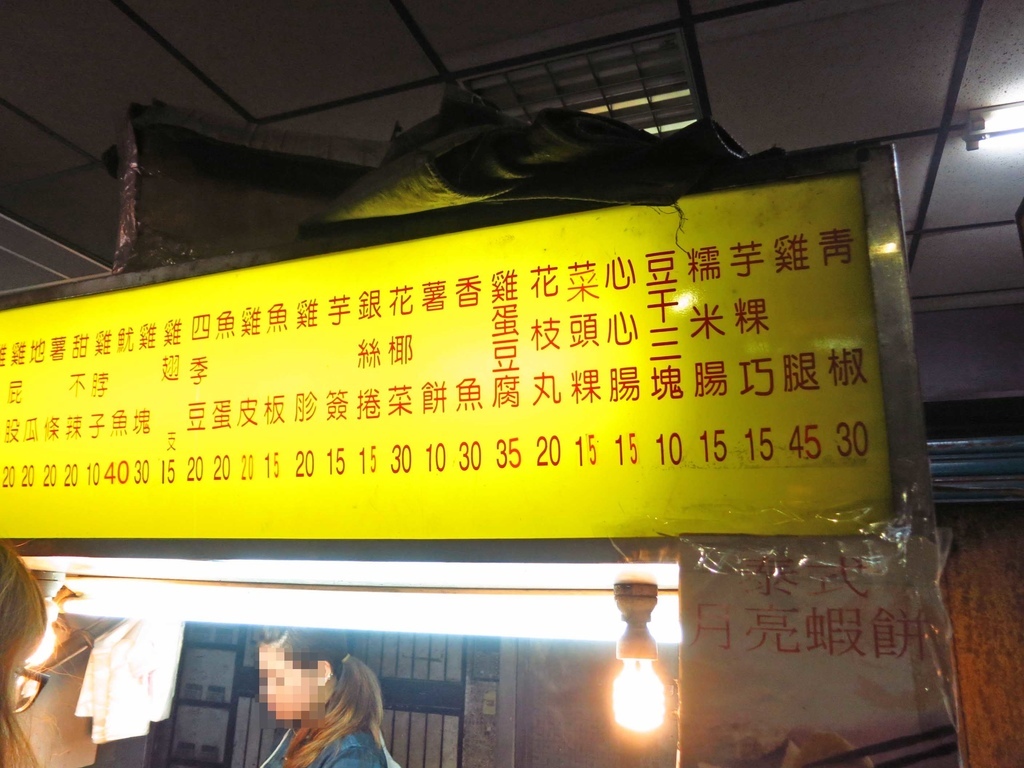 青椒 30
雞腿 45
芋粿巧 15
糯米腸 15
豆干三塊 10
心心腸 15
菜頭粿 15
花枝丸 20
雞蛋豆腐 35
香魚 30
薯餅 10
花椰菜 30
銀絲捲 15
芋簽 15
雞胗 20
魚板 15
雞皮 20
魚蛋 20
四季豆 20
雞翅 15
雞塊 30
魷魚 40
雞脖子 10
甜不辣 20
薯條 20
地瓜 20
雞屁股 20
20
泰式
月亮蝦餅